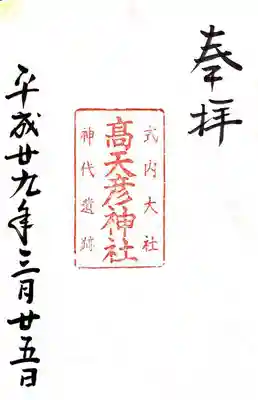 奉拝
式内大社
高天彦神社
神代遺跡
平成廿九年三月廿五日